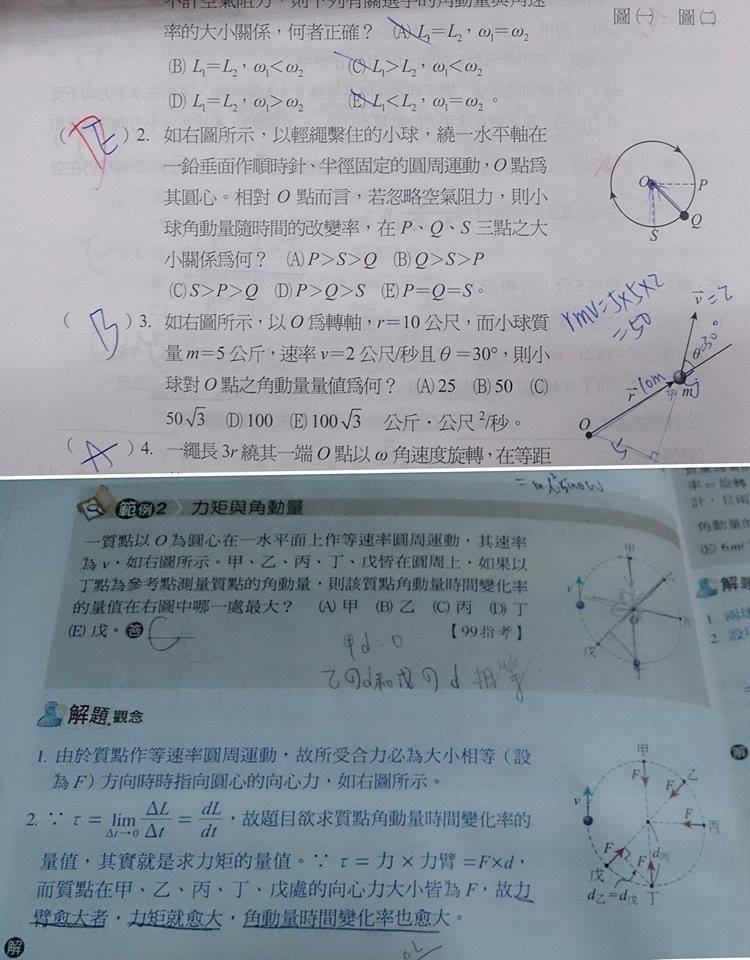 不計空氣阻力，則下列有關選手的角動量與角速
率的大小關係，何者正確？ (A) L₁=L₂，ω₁=ω₂
(B) L₁=L₂，ω₁<ω₂ (C) L₁>L₂，ω₁<ω₂
(D) L₁=L₂，ω₁>ω₂ (E) L₁<L₂，ω₁=ω₂。
圖㈠ 圖㈡
( E ) 2. 如右圖所示，以輕繩繫住的小球，繞一水平軸在
一鉛垂面作順時針、半徑固定的圓周運動，O 點為
其圓心。相對 O 點而言，若忽略空氣阻力，則小
球角動量隨時間的改變率，在 P、Q、S 三點之大
小關係為何？ (A) P>S>Q (B) Q>S>P
(C) S>P>Q (D) P>Q>S (E) P=Q=S。
O P
Q
S
( B ) 3. 如右圖所示，以 O 為轉軸，r=10 公尺，而小球質
量 m=5 公斤，速率 v=2 公尺/秒且 θ=30°，則小
球對 O 點之角動量量值為何？ (A) 25 (B) 50 (C)
50√3 (D) 100 (E) 100√3 公斤．公尺²/秒。
rmv=5×5×2
=50
v=2
θ=30°
r 10m m
O
5
( A ) 4. 一繩長 3r 繞其一端 O 點以 ω 角速度旋轉，在等距
範例2 力矩與角動量
一質點以 O 為圓心在一水平面上作等速率圓周運動，其速率
為 v，如右圖所示。甲、乙、丙、丁、戊皆在圓周上，如果以
丁點為參考點測量質點的角動量，則該質點角動量時間變化率
的量值在右圖中哪一處最大？ (A) 甲 (B) 乙 (C) 丙 (D) 丁
(E) 戊。答 C 【99指考】
甲d=0
乙的d和戊的d相等
甲
v
戊
解題 觀念
1. 由於質點作等速率圓周運動，故所受合力必為大小相等（設
為 F）方向時時指向圓心的向心力，如右圖所示。
2. ∵ τ = lim Δt→0 ΔL/Δt = dL/dt，故題目欲求質點角動量時間變化率的
量值，其實就是求力矩的量值。∵ τ＝力×力臂＝F×d，
而質點在甲、乙、丙、丁、戊處的向心力大小皆為 F，故力
臂愈大者，力矩就愈大，角動量時間變化率也愈大。
甲
F F 乙
v
F 丙
F F d丙
戊
d乙=d戊 丁
解
率 ω 旋轉
計，且兩
角動量的
(E) 6m
解題
1. 兩球
2. 設